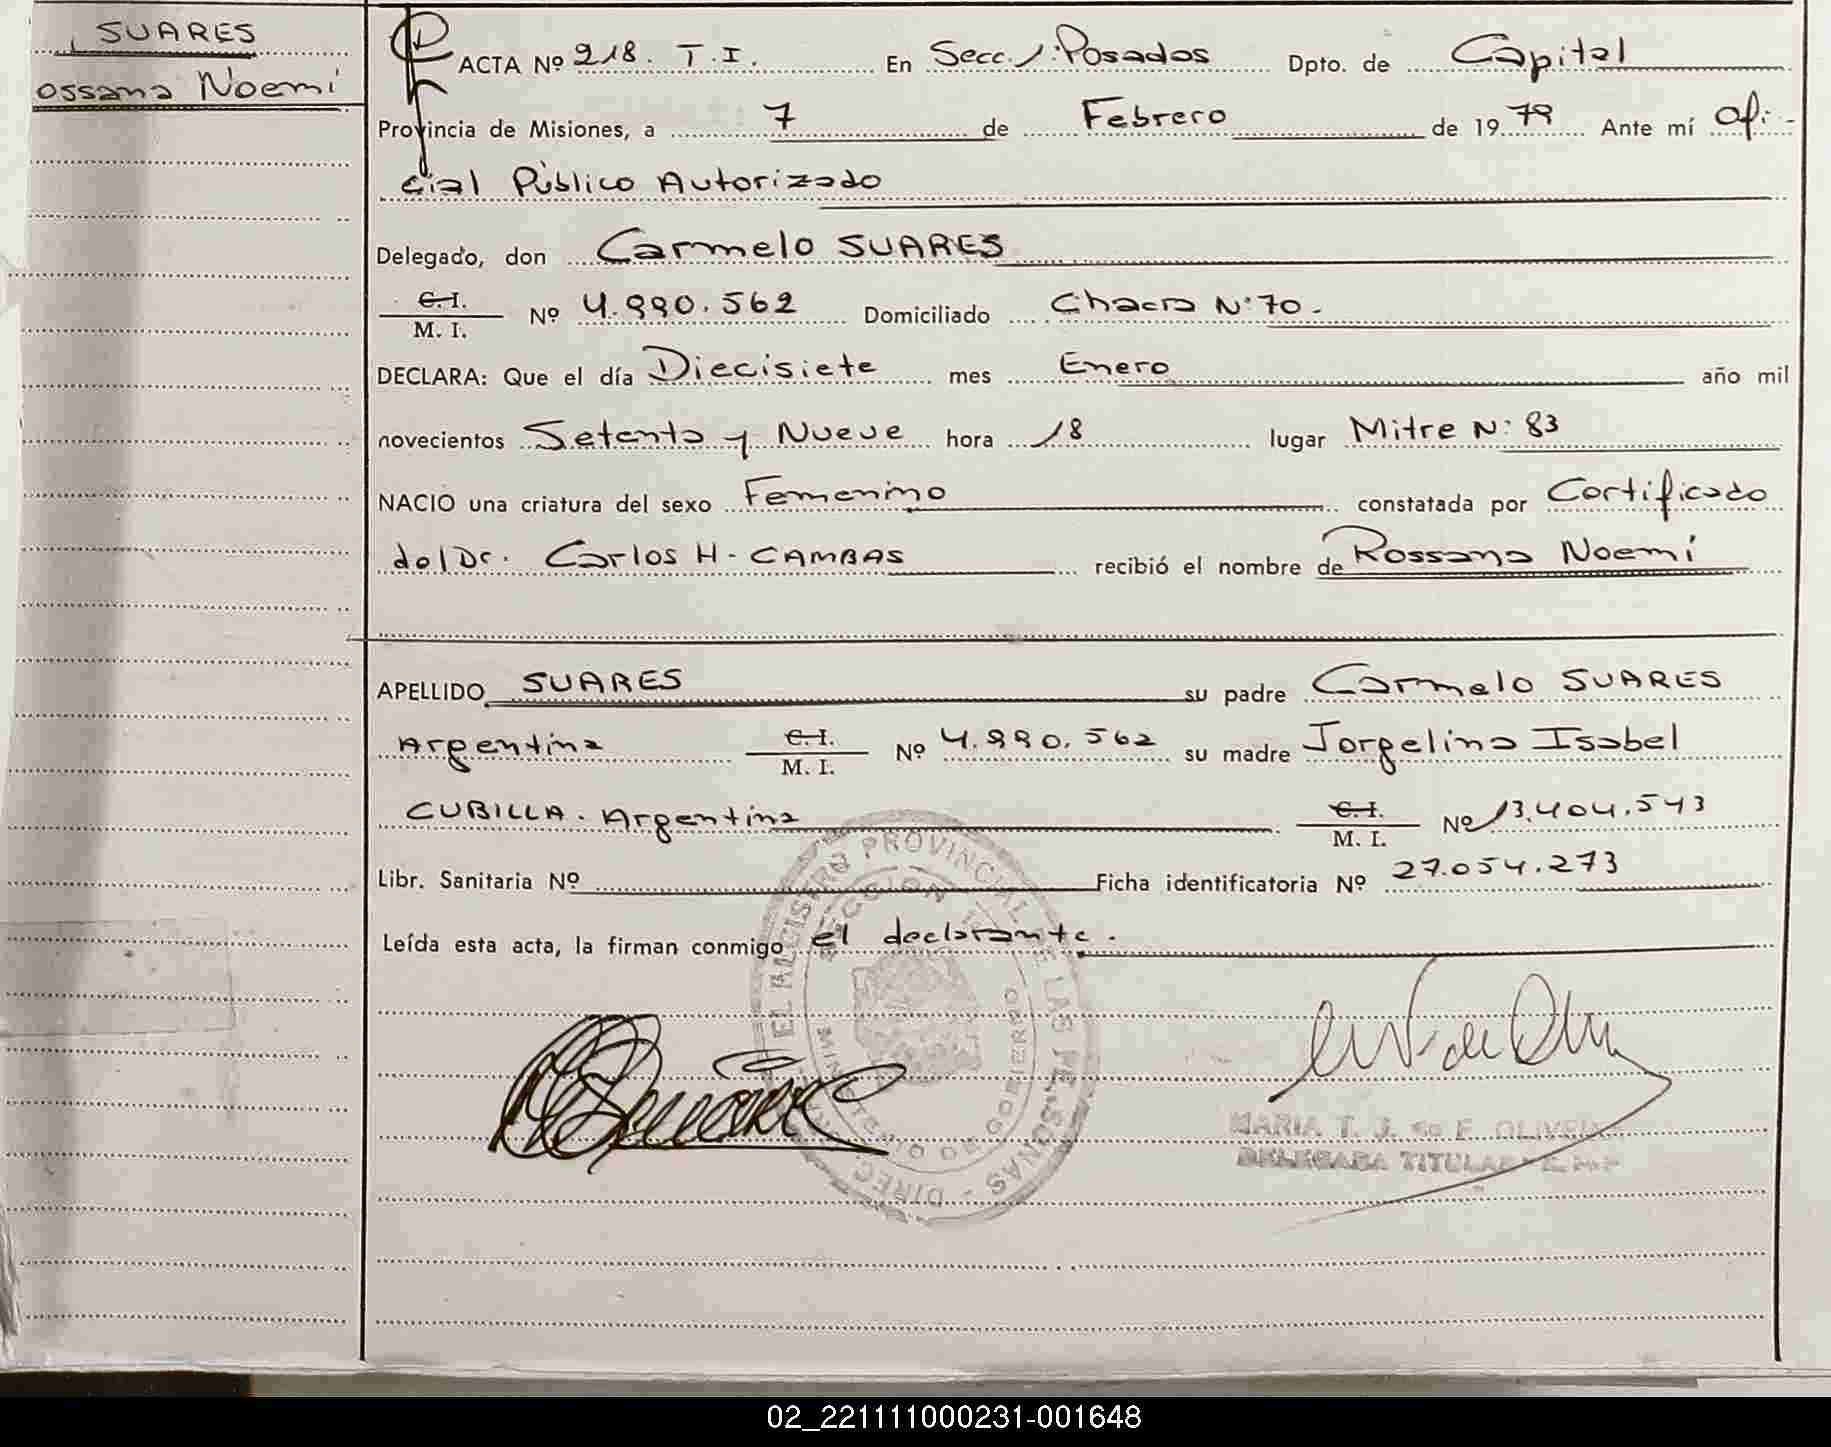 SUARES
ossana Noemí
ACTA Nº 218. T.I. En Secc. 1º Posadas Dpto. de Capital
Provincia de Misiones, a 7 de Febrero de 1979 Ante mí Ofi-
cial Público Autorizado
Delegado, don Carmelo SUARES
C. I.
M. I. Nº 4.990.562 Domiciliado Chacra Nº 70.-
DECLARA: Que el día Diecisiete mes Enero año mil
novecientos Setenta y Nueve hora 18 lugar Mitre Nº 83
NACIO una criatura del sexo Femenino constatada por Certificado
del Dr. Carlos H. CAMBAS recibió el nombre de Rossana Noemí
APELLIDO SUARES su padre Carmelo SUARES
Argentina C. I. M. I. Nº 4.990.562 su madre Jorgelina Isabel
CUBILLA. Argentina C. I. M. I. Nº 13.404.543
Libr. Sanitaria Nº Ficha identificatoria Nº 27.054.273
Leída esta acta, la firman conmigo el declarante.
REGISTRO PROVINCIAL DE LAS PERSONAS - DIREC.
SECCION
MINISTERIO DE GOBIERNO
MARIA T. J. de F. OLIVEIRA
DELEGADA TITULAR
02_221111000231-001648